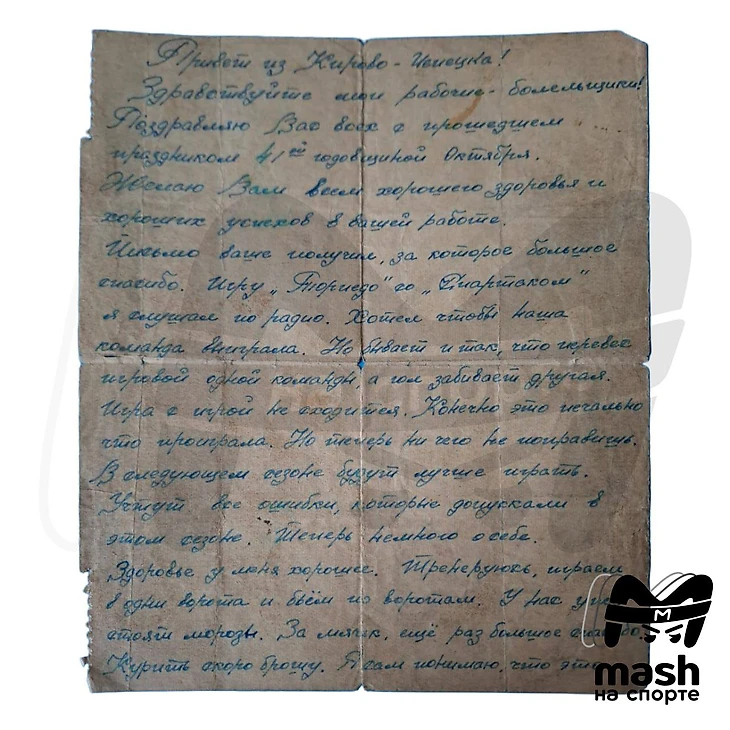 Привет из Кирово-Чепецка!
Здравствуйте мои рабочие-болельщики!
Поздравляю Вас всех с прошедшем
праздником 41ой годовщиной Октября.
Желаю Вам всем хорошего здоровья и
хороших успехов в вашей работе.
Письмо ваше получил, за которое большое
спасибо. Игру „Торпедо" со „Спартаком"
я слушал по радио. Хотел чтобы наша
команда выиграла. Но бывает и так, что перевес
игровой одной команды, а гол забивает другая.
Игра с игрой не сходится. Конечно это печально
что проиграла. Но теперь ни чего не поправишь.
В следующем сезоне будут лучше играть.
Учтут все ошибки, которые допускали в
этом сезоне. Теперь немного о себе.
Здоровье у меня хорошее. Тренеруюсь, играем
в одни ворота и бьём по воротам. У нас
стоят морозы. За мячик, ещё раз большое спасибо.
Курить скоро брошу. Я сам понимаю, что это
mash
на спорте